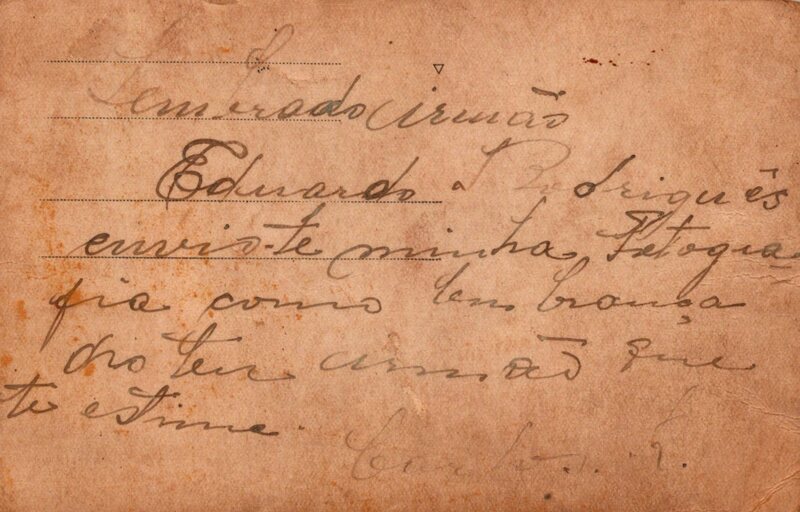 Lembrado irmão
Eduardo Rodriguês
envio-te minha Fotogra
fia como lembrança
do teu irmão que
te estima.